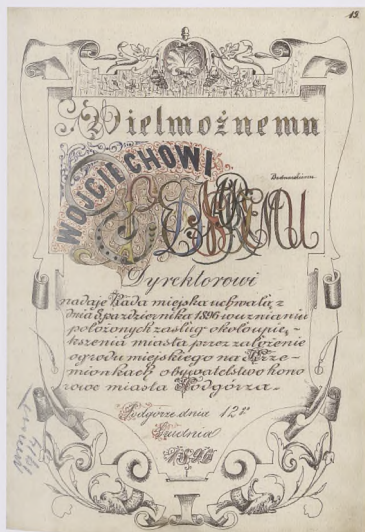 19.
Wielmożnemu
WOJCIECHOWI
Bednarskiemu
Dyrektorowi
nadaje Rada miejska uchwałą z
dnia 8 października 1896 w uznaniu
położonych zasług około upię-
kszenia miasta przez założenie
ogrodu miejskiego na Krze-
mionkach obywatelstwo hono
rowe miasta Podgórza.
Podgórze dnia 12go
Grudnia
1896